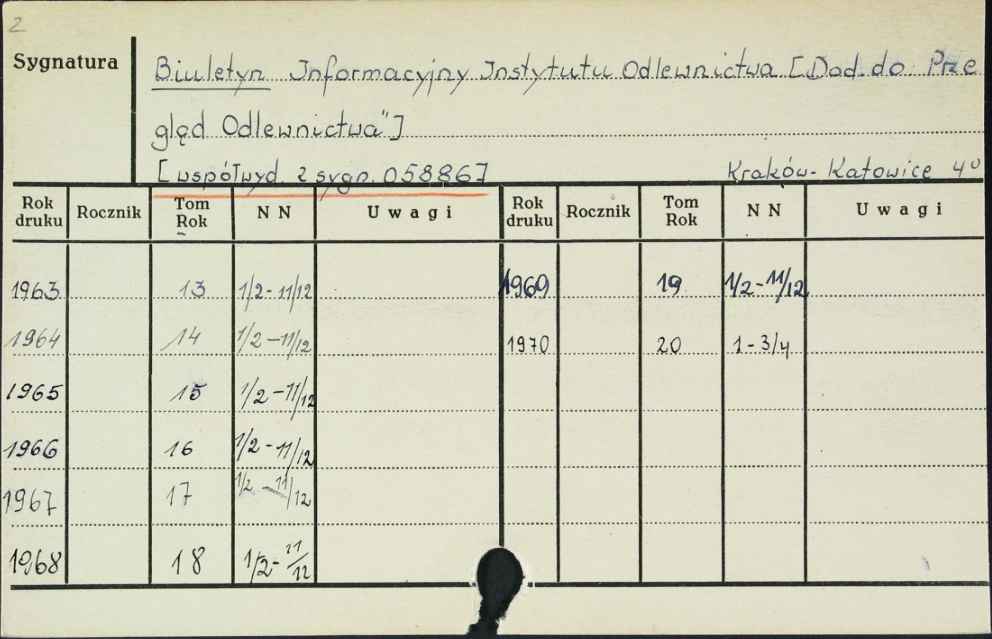 2
Sygnatura
Biuletyn Informacyjny Instytutu Odlewnictwa [Dod. do Prze
gląd Odlewnictwa"]
[współwyd. z sygn. 058886]
Kraków- Katowice 4º
Rok druku Rocznik Tom Rok N N Uwagi Rok druku Rocznik Tom Rok N N Uwagi
1963 13 1/2 - 11/12 1969 19 1/2 - 11/12
1964 14 1/2 - 11/12 1970 20 1 - 3/4
1965 15 1/2 - 11/12
1966 16 1/2 - 11/12
1967 17 1/2 - 11/12
1968 18 1/2 - 11/12